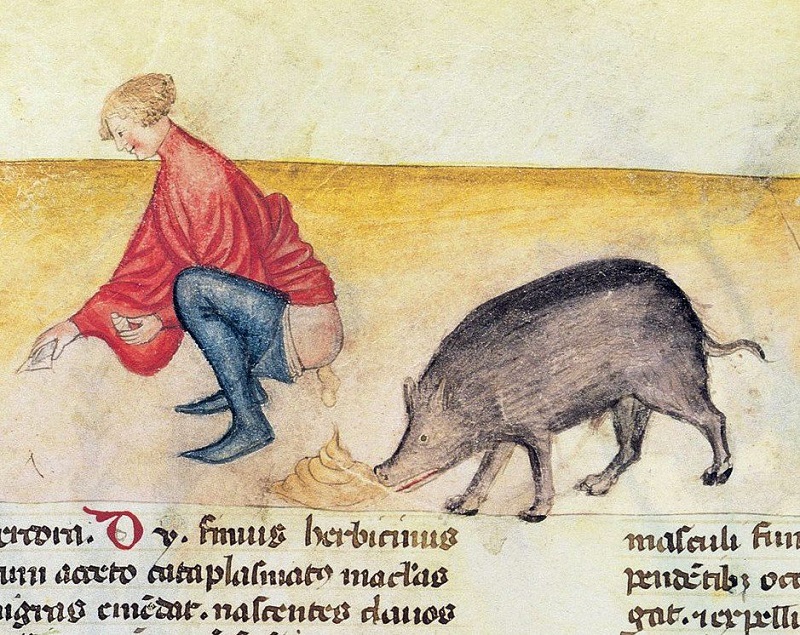 ercora. Dy. fimus herbicinus
cum aceto cataplasmatꝰ maclas
nigras emēdat. nascentes clauos
masculi fim
pendētibꝫ occ
gat. ⁊ expelli